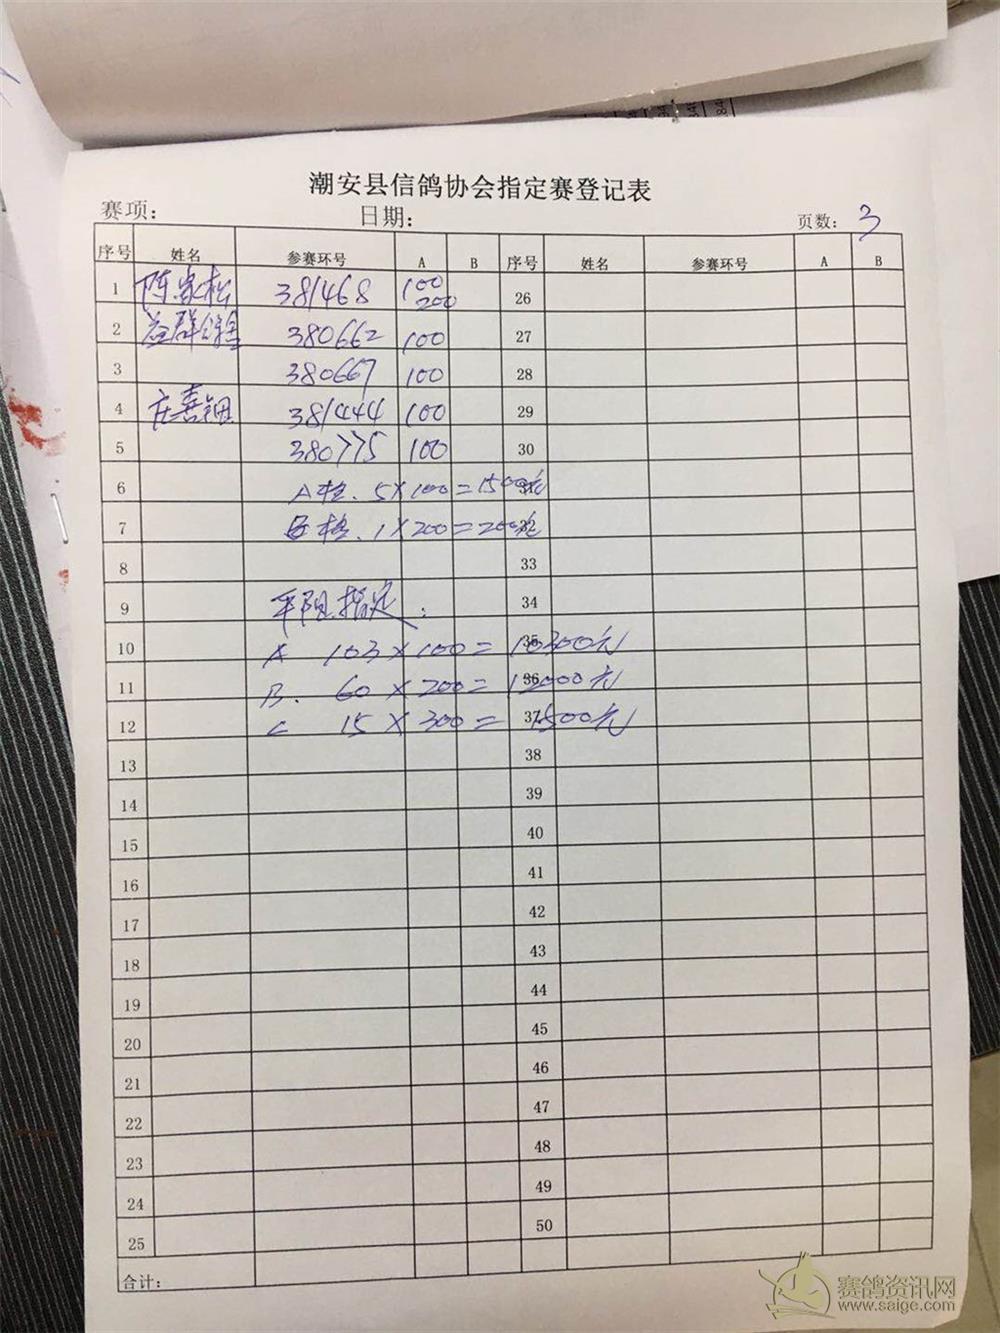 潮安县信鸽协会指定赛登记表
赛项: 日期: 页数: 3
序号 姓名 参赛环号 A B 序号 姓名 参赛环号 A B
1 陈家松 381468 100 200 26
2 益群鸽舍 380662 100 27
3 380667 100 28
4 庄喜钿 381444 100 29
5 380775 100 30
6 A格. 5×100=1500元 31
7 B格. 1×200=200元 32
8 33
9 平阳指定: 34
10 A 103×100=10300元 35
11 B. 60×200=12000元 36
12 C 15×300=1500元 37
13 38
14 39
15 40
16 41
17 42
18 43
19 44
20 45
21 46
22 47
23 48
24 49
25 50
合计:
赛鸽资讯网
www.saige.com